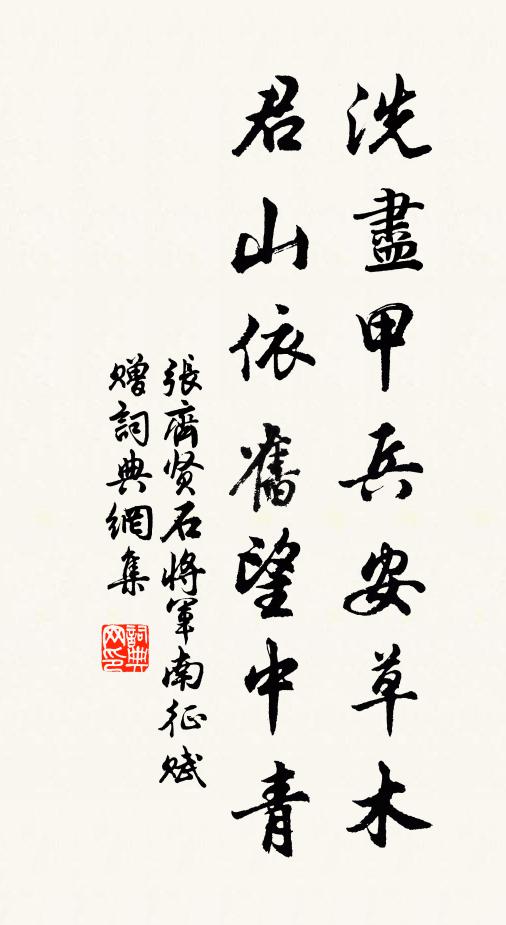 洗盡甲兵安草木
君山依舊望中青
張齊賢石將軍南征賦
贈詞典網集
詞典网印